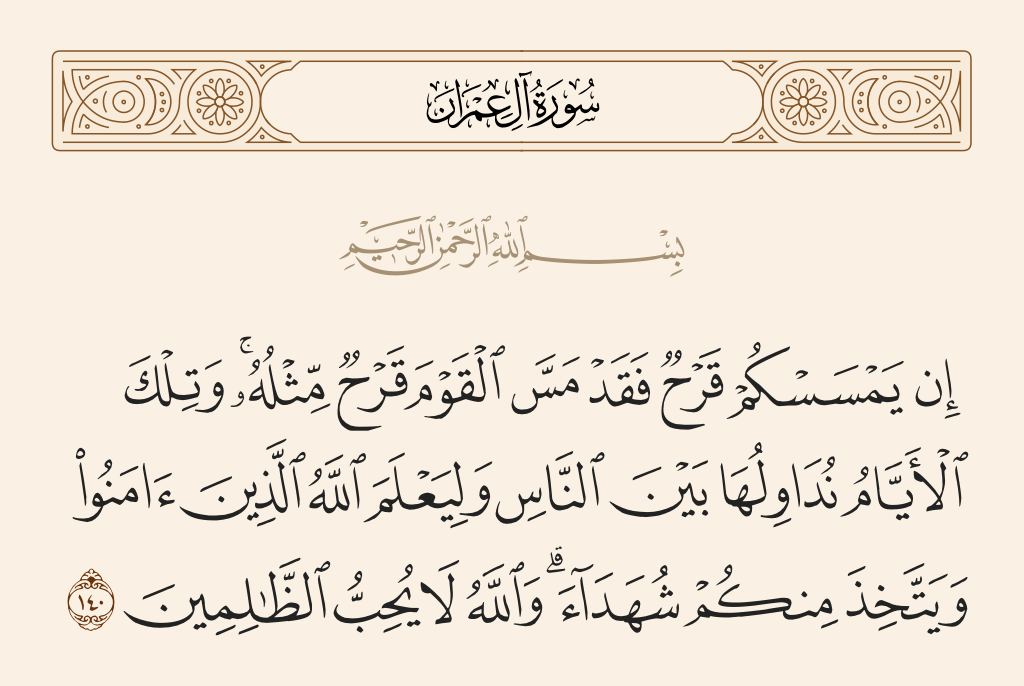 سُورَةُ آلِ عِمْرَان
بِسْمِ ٱللَّهِ ٱلرَّحْمَٰنِ ٱلرَّحِيمِ
إِن يَمْسَسْكُمْ قَرْحٌ فَقَدْ مَسَّ ٱلْقَوْمَ قَرْحٌ مِّثْلُهُۥ ۚ وَتِلْكَ
ٱلْأَيَّامُ نُدَاوِلُهَا بَيْنَ ٱلنَّاسِ وَلِيَعْلَمَ ٱللَّهُ ٱلَّذِينَ ءَامَنُوا۟
وَيَتَّخِذَ مِنكُمْ شُهَدَآءَ ۗ وَٱللَّهُ لَا يُحِبُّ ٱلظَّٰلِمِينَ ١٤٠